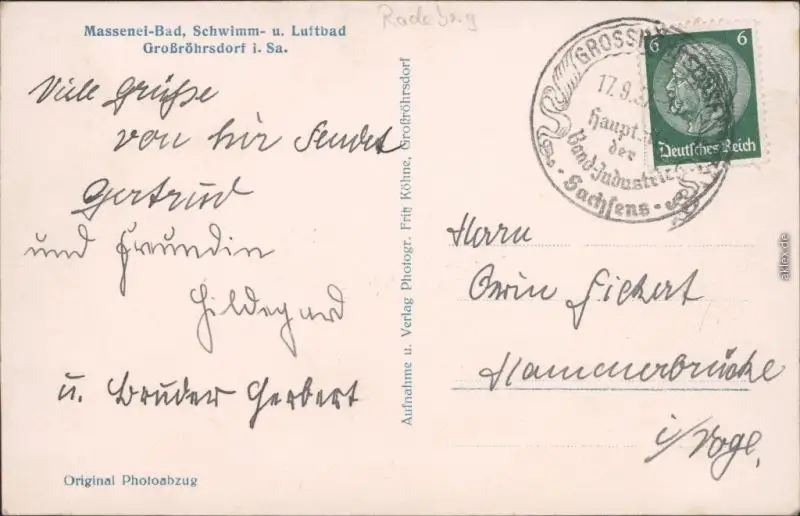 Radeburg
Massenei-Bad, Schwimm- u. Luftbad
Großröhrsdorf i. Sa.
Viele Grüße
von hir sendet
Gertrud
und Freundin
Hildegard
u. Bruder Herbert
Original Photoabzug
Aufnahme u. Verlag Photogr. Fritz Köhne, Großröhrsdorf
17.9.3
Haupt
der
Band-Industrie
Sachsens
6 6
Deutsches Reich
Herrn
Erwin Sickert
Hammerbrücke
i/Vogl.
aklex.de